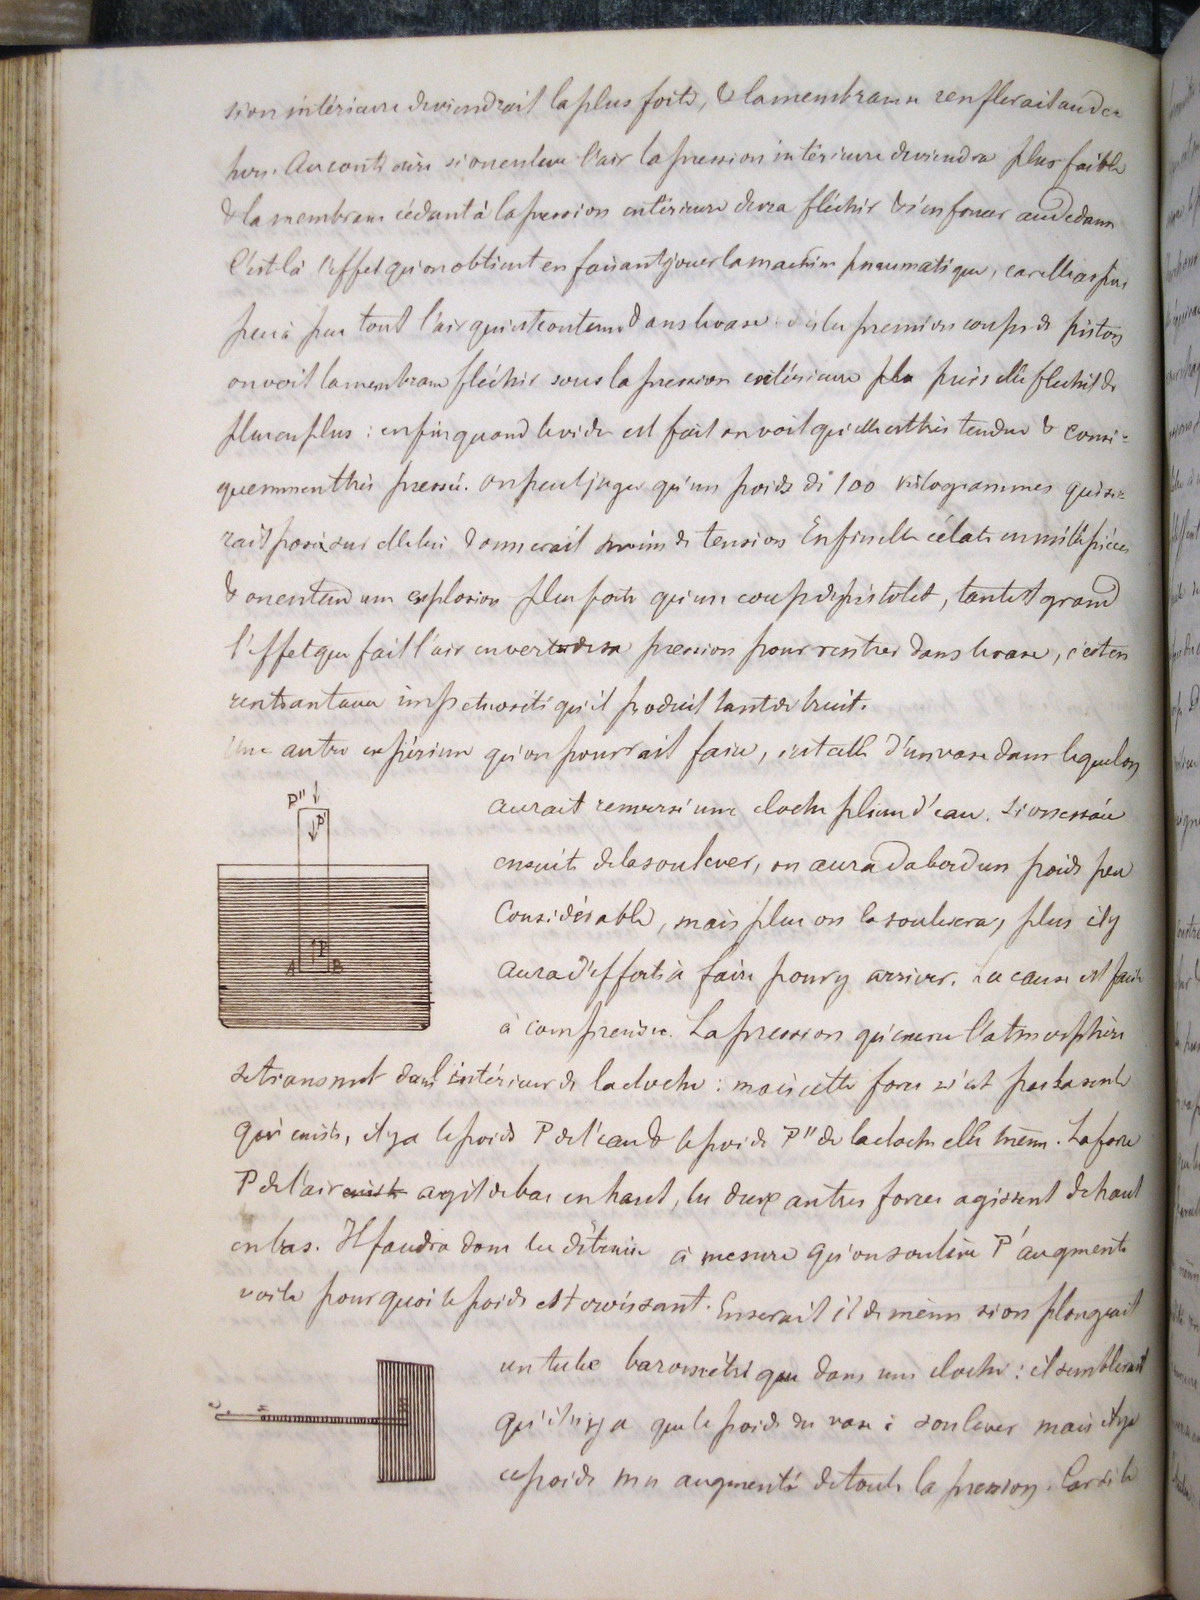 sion intérieure deviendrait la plus forte, & la membrane renflerait au de
hors. Au contraire si on enleve l'air la pression intérieure deviendra plus faible
& la membrane cédant à la pression extérieure devra fléchir & s'enfoncer au dedans
C'est là l'effet qu'on obtient en faisant jouer la machine pneumatique, car elle aspire
peu à peu tout l'air qui est contenu dans le vase. dès les premiers coups de piston
on voit la membrane fléchir sous la pression extérieure puis elle fléchit de
plus en plus : enfin quand le vide est fait on voit qu'elle est très tendue & consé-
quemment très pressée. On peut juger qu'un poids de 100 kilogrammes qui se-
rait posé sur elle lui donnerait moins de tension Enfin elle éclate en mille pièces
& on entend une explosion plus forte qu'un coup de pistolet, tant est grand
l'effet que fait l'air en vertu de sa pression pour rentrer dans le vase, c'est en
rentrant avec impétuosité qu'il produit tant de bruit.
Une autre expérience qu'on pourrait faire, c'est celle d'un vase dans lequel on
P''
P'
P
A B
aurait renversé une cloche pleine d'eau. Si on essaie
ensuite de la soulever, on aura d'abord un poids peu
Considérable, mais plus on la soulevera, plus il y
aura d'efforts à faire pour y arriver. La cause est facile
à comprendre. La pression qu'exerce l'atmosphère
se transmet dans l'intérieur de la cloche : mais cette force n'est pas la seule
qui existe, il y a le poids P' de l'eau & le poids P'' de la cloche elle même. La force
P de l'air agit de bas en haut, les deux autres forces agissent de haut
en bas. Il faudra donc les détruire à mesure qu'on soulève P' augmente
voila pourquoi le poids est croissant. En serait il de même si on plongeait
un tube barométrique dans une cloche : il semblerait
qu'il n'y a que le poids du vase à soulever mais il y a
ce poids augmenté de toute la pression. Car si le